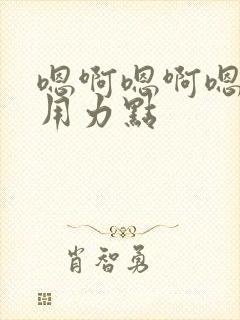 嗯啊嗯啊嗯
用力點
肖智勇